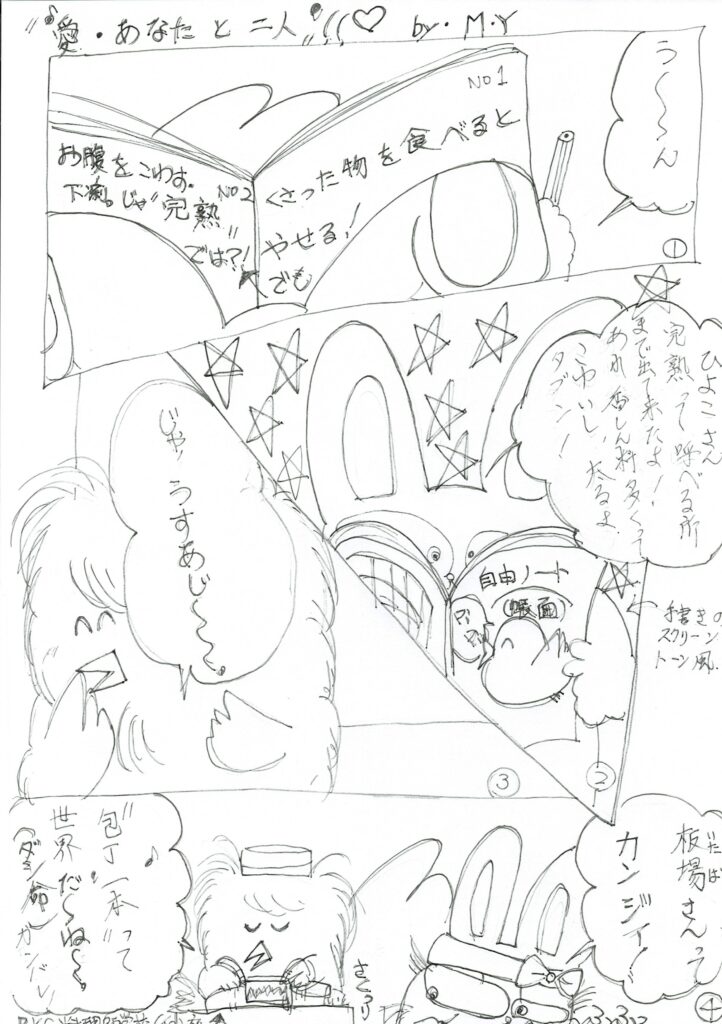 "愛・あなたと二人"!!(♡ by・M・Y
う〜〜ん
①
NO1
くさった物を食べると
やせる!
でも
お腹をこわす.
下痢。じゃNO2
"完熟"
では?!
ひよこさん
完熟って呼べる所
まで出て来たよ!
あれ香しん料多くて
こわいし、太るよ
タブン!
自由ノート
(帳面)
手書きの
スクリーン
トーン風.
②
じゃ、うすあじ〜〜。
③
板場さんって
いたば
カンジィ!
"包丁一本"って♪
世界だ〜ね〜〜。
さくっ
④